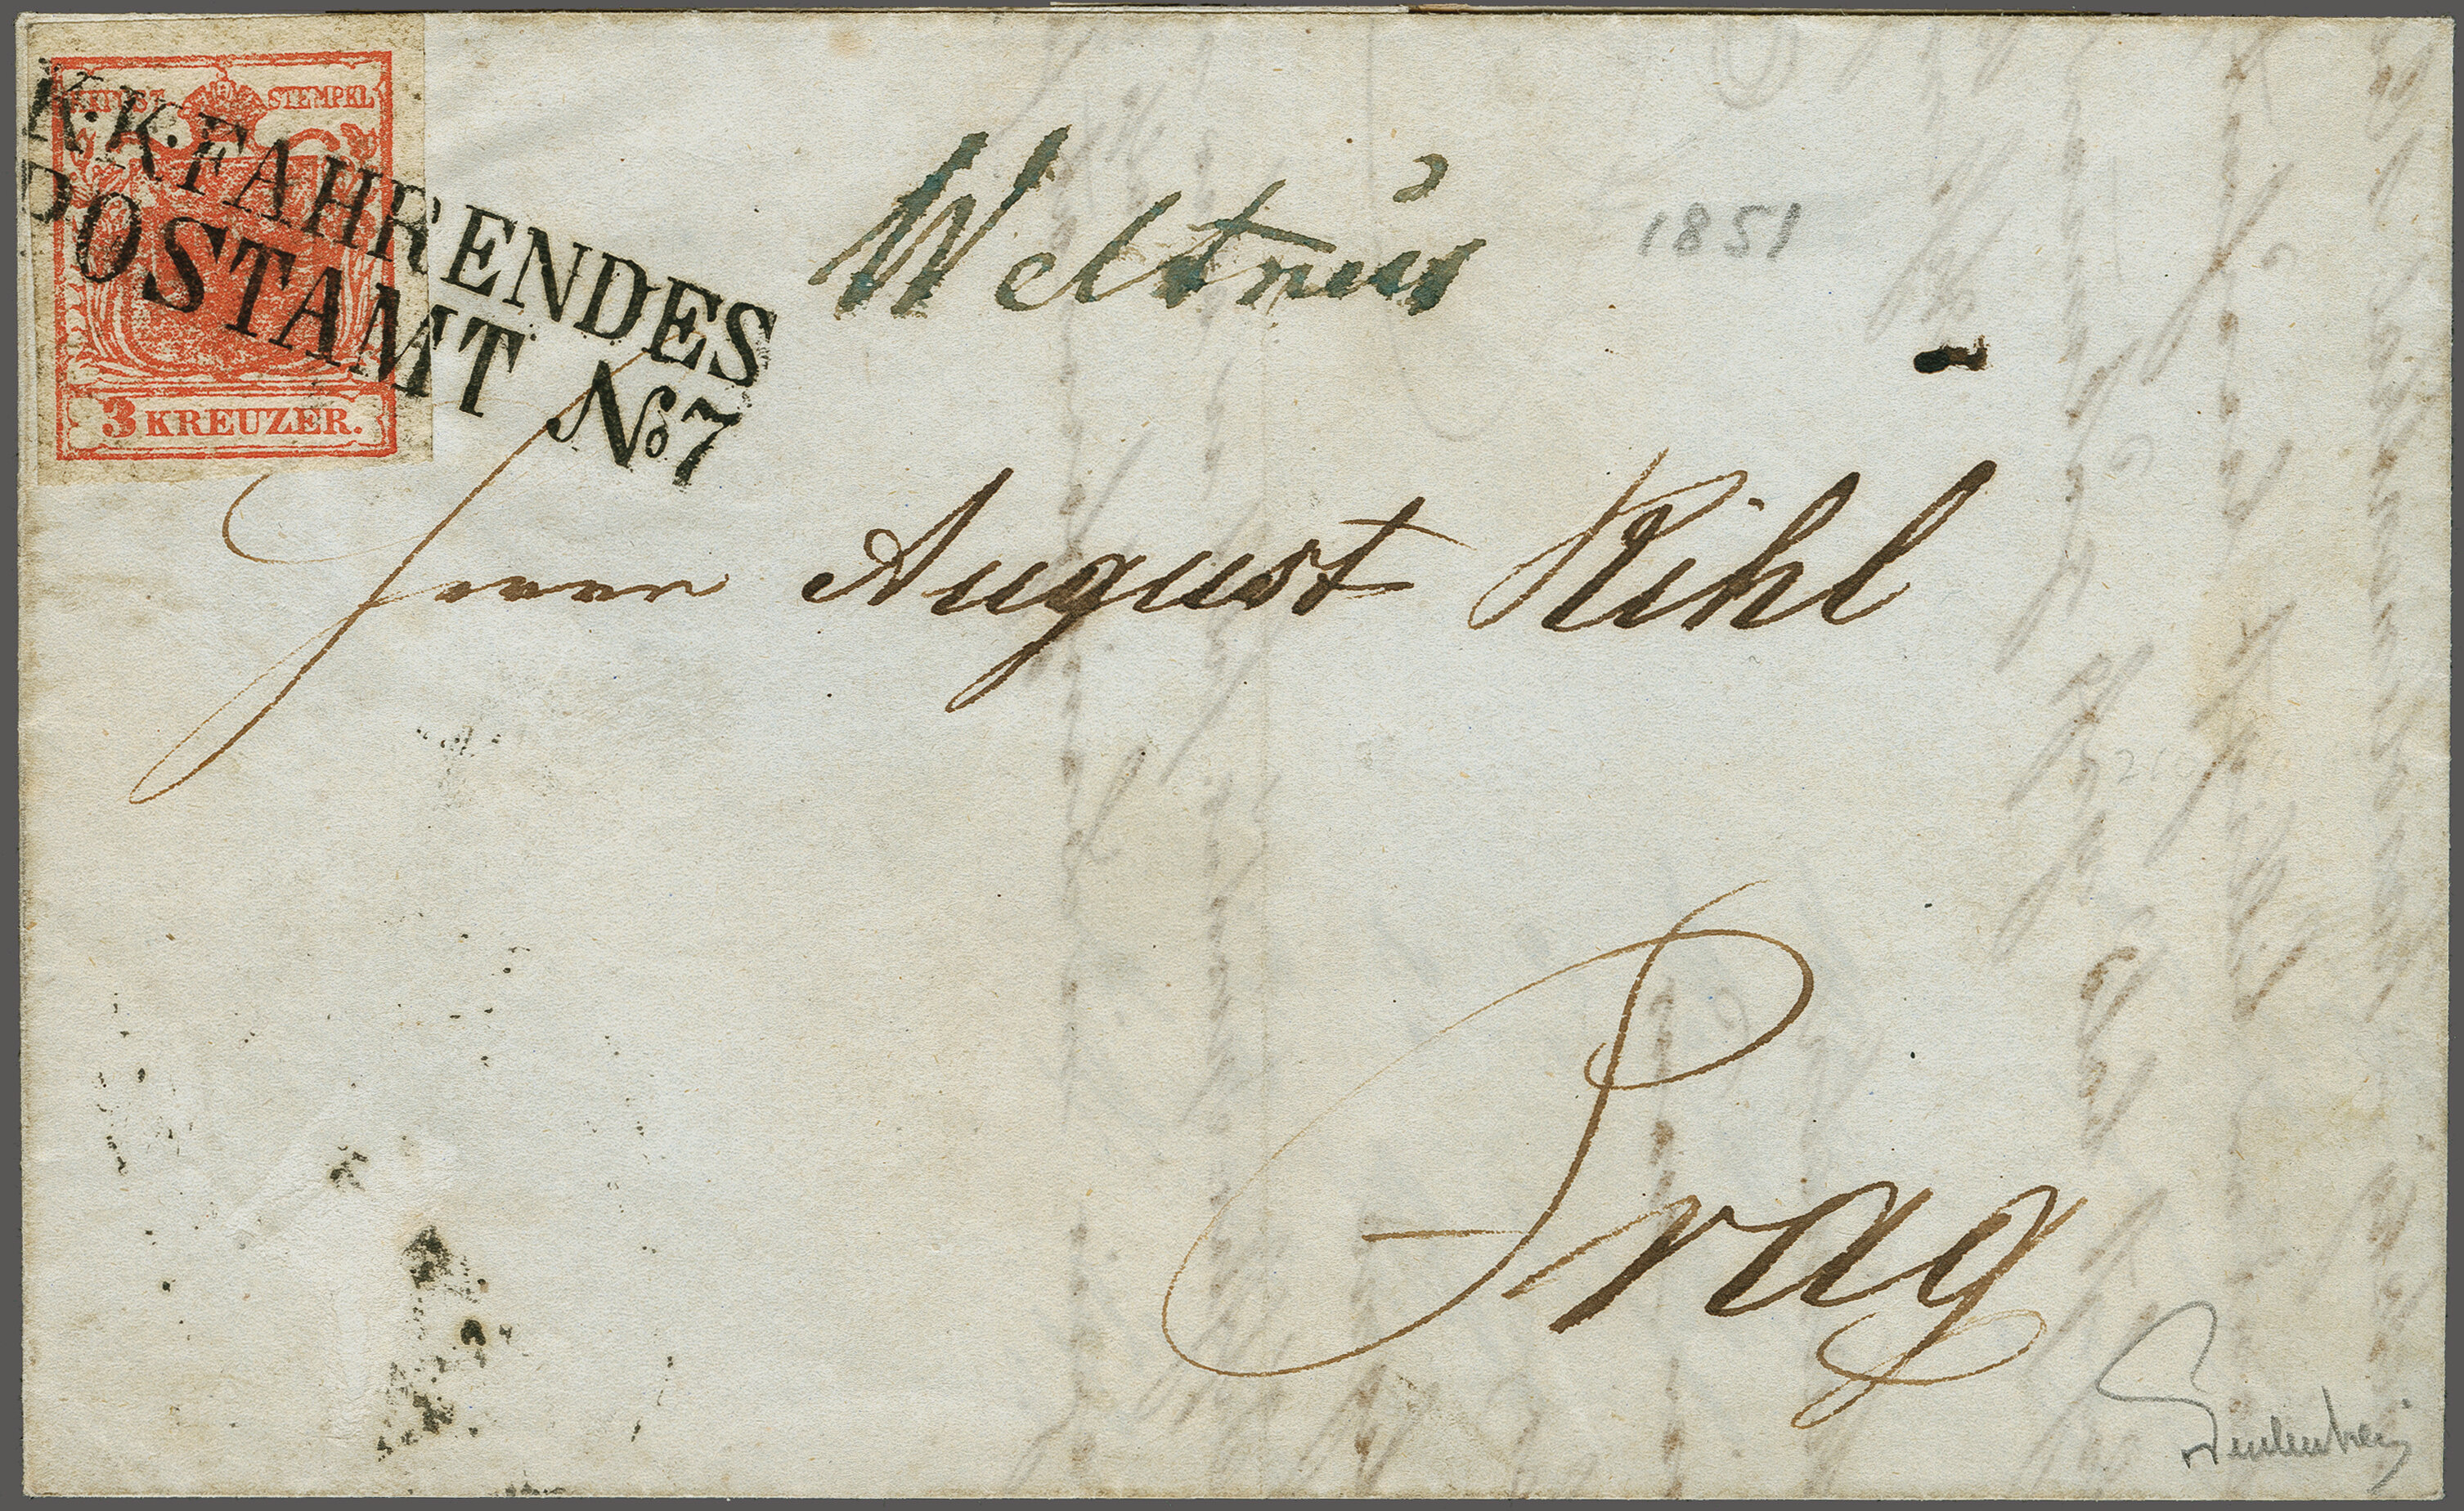 STEMPEL
K.K.FAHRENDES
POSTAMT No 7
3 KREUZER.
Weltrus
1851
Herrn August Kihl
Prag